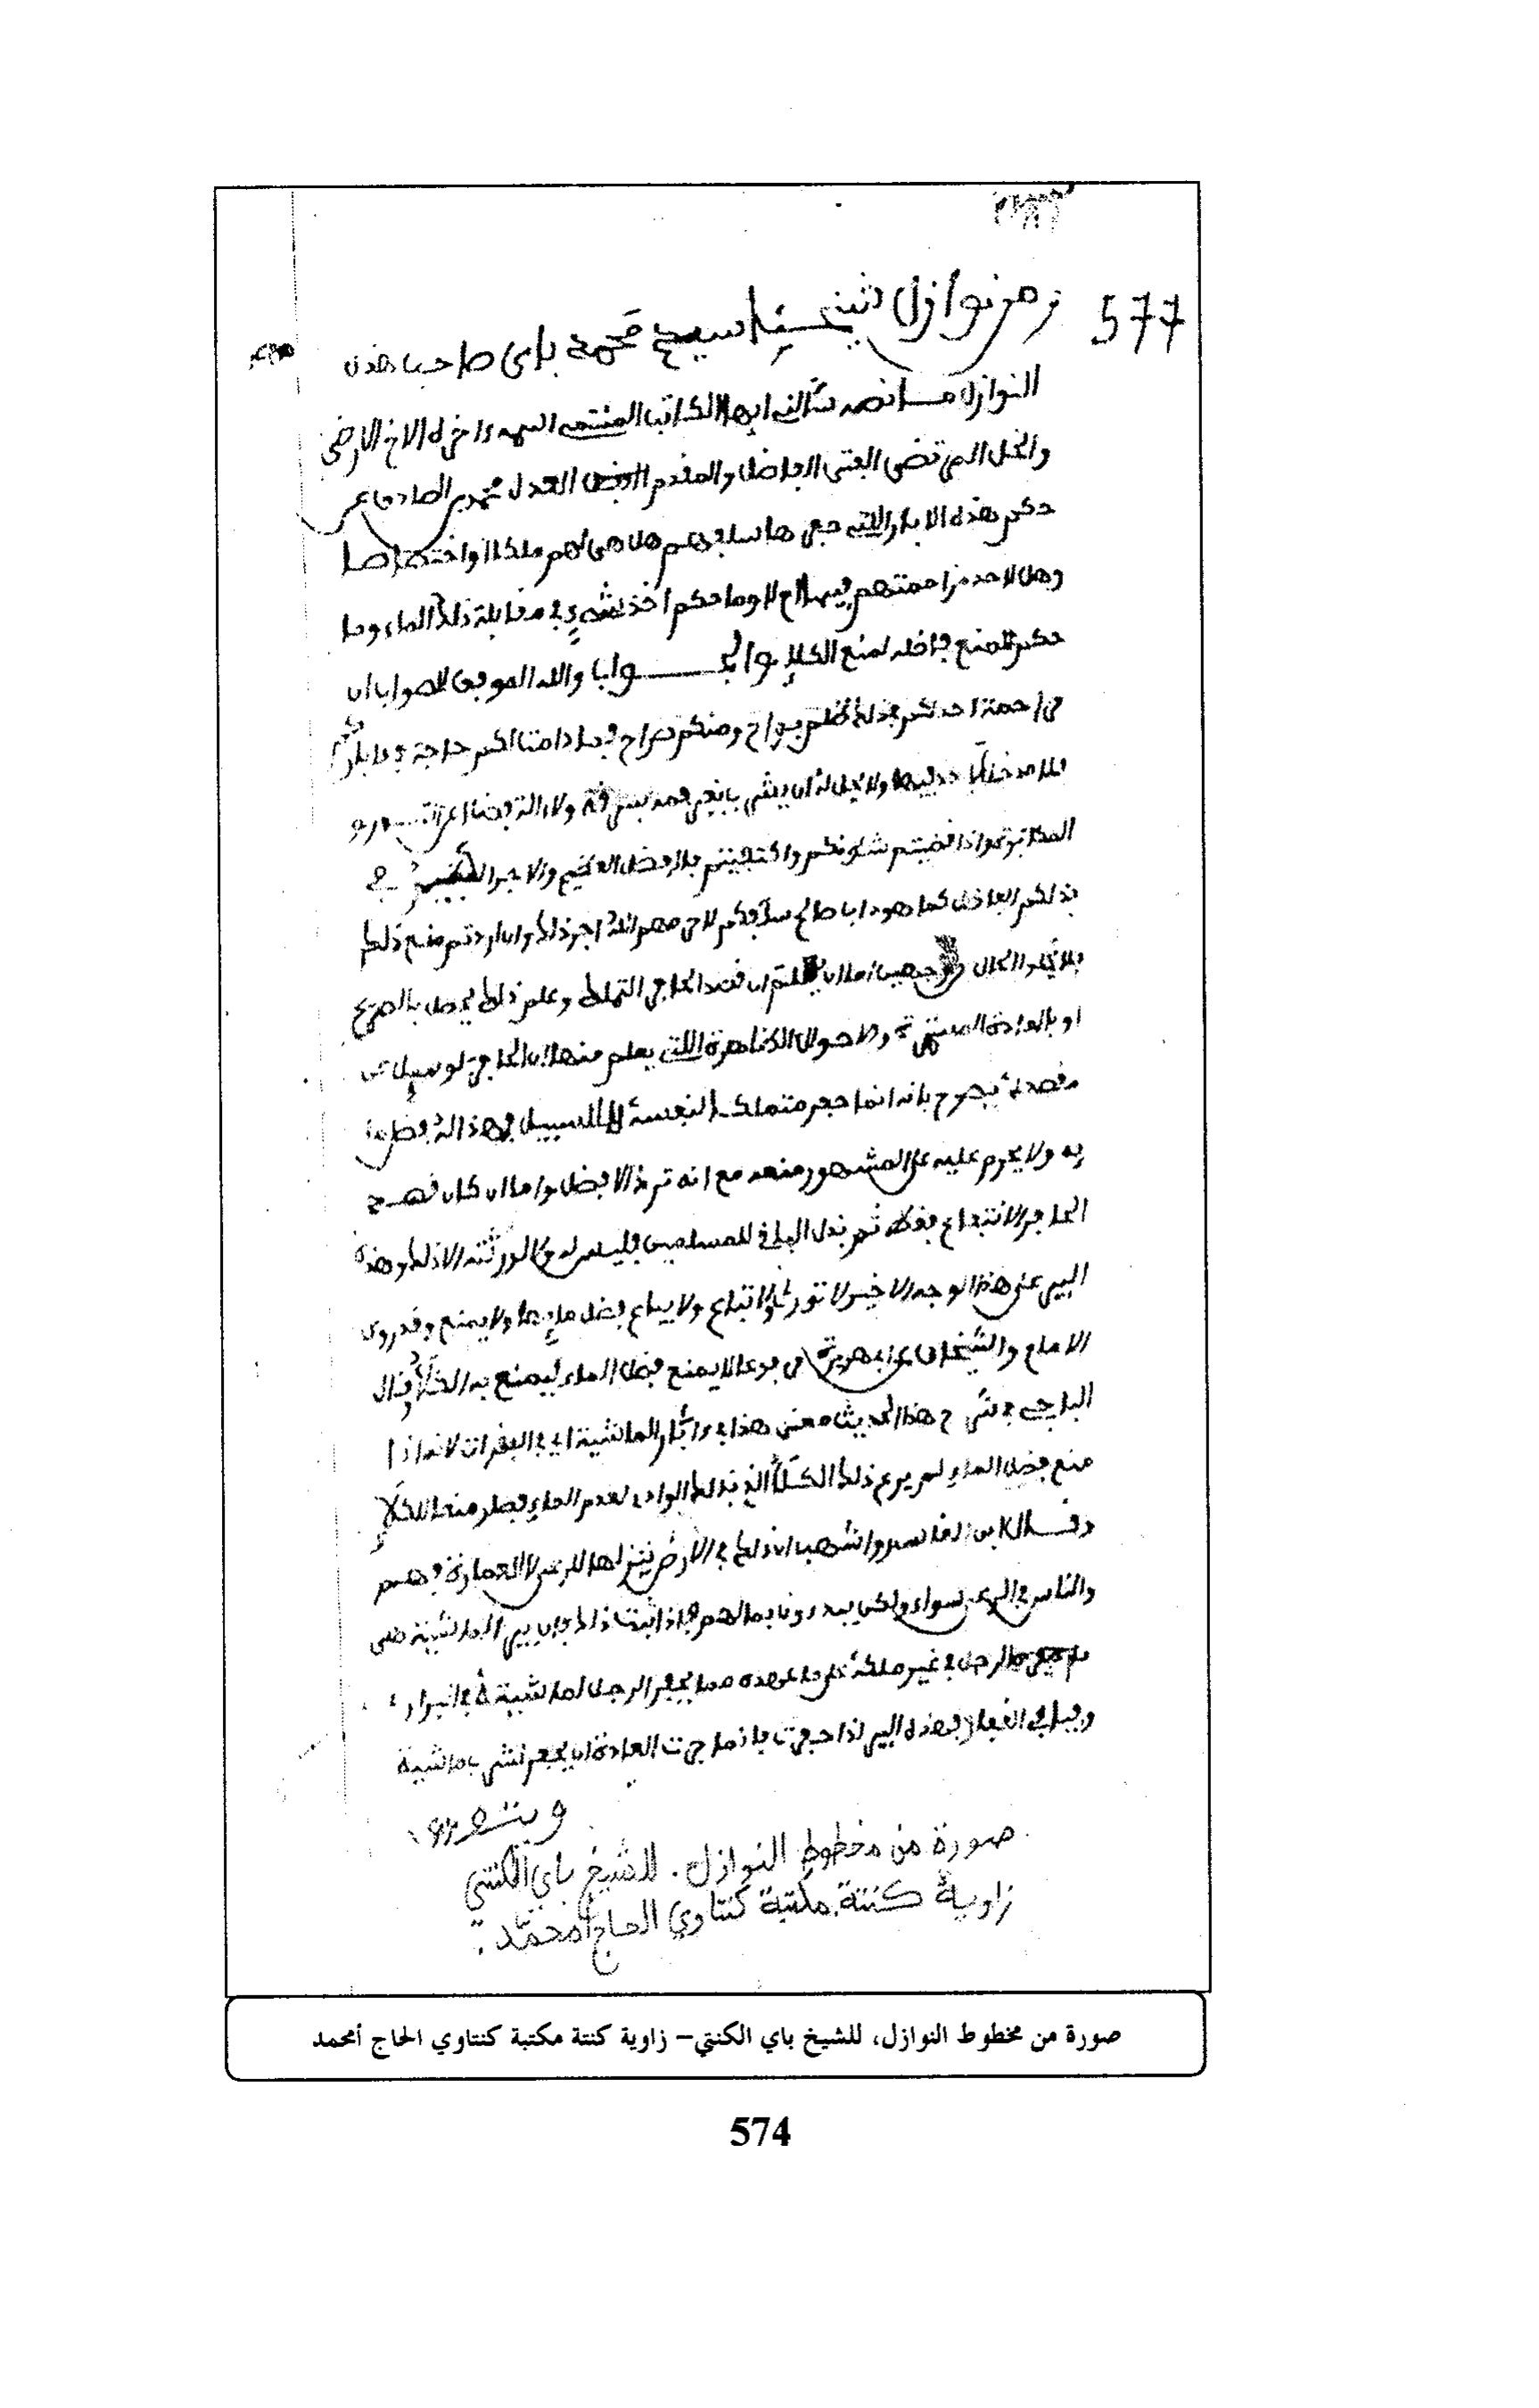 577
ومن نوازل شيخنا سيدي محمد باي صاحب هذه
النوازل ما نصه سألني ايها الكاتب المنتمي اليه واخي في الاخ الارضى
والخل المرتضى الفتى الفاضل والمقدم العدل محمد بن الصادق عن
حكم هذه الابار التي حفرها سلفهم هل هي لهم ملكا او اختصاصا
وهل لاحد مزاحمتهم فيها ام لا وما حكم اخذ شيء في مقابلة ذلك الماء وما
حكم المنع فضله لمنع الكلإ والجواب والله الموفق للصواب ان
مزاحمة احد لكم بذلك ظلم صراح فما دامت لكم حاجة
فلا مدخل لاحد فيها ولا يحل له ان
واذا قضيتم شئونكم واكتفيتم فالفضل العظيم والاجر الكبير في
بذلكم الفاضل كما هو داب صالح سلفكم لا حرمهم الله اجر ذلك وان اردتم منع ذلك
فلا يخلو الحال من وجهين اما ان يعلم ان قصد الحافر التملك وعلم ذلك يحصل بالتصريح
او بالعادة المستمرة والاحوال الظاهرة التي يعلم منها ان الحافر لو سيل عن
مقصده لصرح بانه انما حفر متملكا لنفسه لا للسبيل فهذا له فضل ما
به ولا يحرم عليه على المشهور منعه مع انه ترك الافضل واما ان كان قصد
الحافر الانتفاع فقط ثم بذل الباقي للمسلمين فليس له ولا لورثته الا ذلك وهذه
البير على هذا الوجه الاخير لا تورث ولا تباع ولا يباع فضل مايها ولا يمنع وقد روى
الامام والشيخان عن ابي هريرة مرفوعا لا يمنع فضل الماء ليمنع به الكلأ وقال
الباجي في شرح هذا الحديث معنى هذا في ءابار الماشية التي في الفلوات لانه اذا
منع فضل الماء لم يرع ذلك الكلأ الذي بذلك الوادي لعدم الماء فصار منعا للكلإ
وقال ابن القاسم واشهب ان ذلك في الارض ينزلها للرعي لا للعمارة فهم
والناس في الرعي سواء ولكن يبدءون بمايهم فاذا ثبت ذلك فان بير الماشية هي
ما حفره الرجل في غير ملكه على ما عهده مما يحفر الرجل لماشيته في البراري
وفيافي القفار فهذه البير اذا حفرت فانما جرت العادة ان يحفر لشرب ماشية
صورة من مخطوط النوازل. للشيخ باي الكنتي
زاوية كنتة. مكتبة كنتاوي الحاج أمحمّد.
صورة من مخطوط النوازل، للشيخ باي الكنتي– زاوية كنتة مكتبة كنتاوي الحاج أمحمد
574